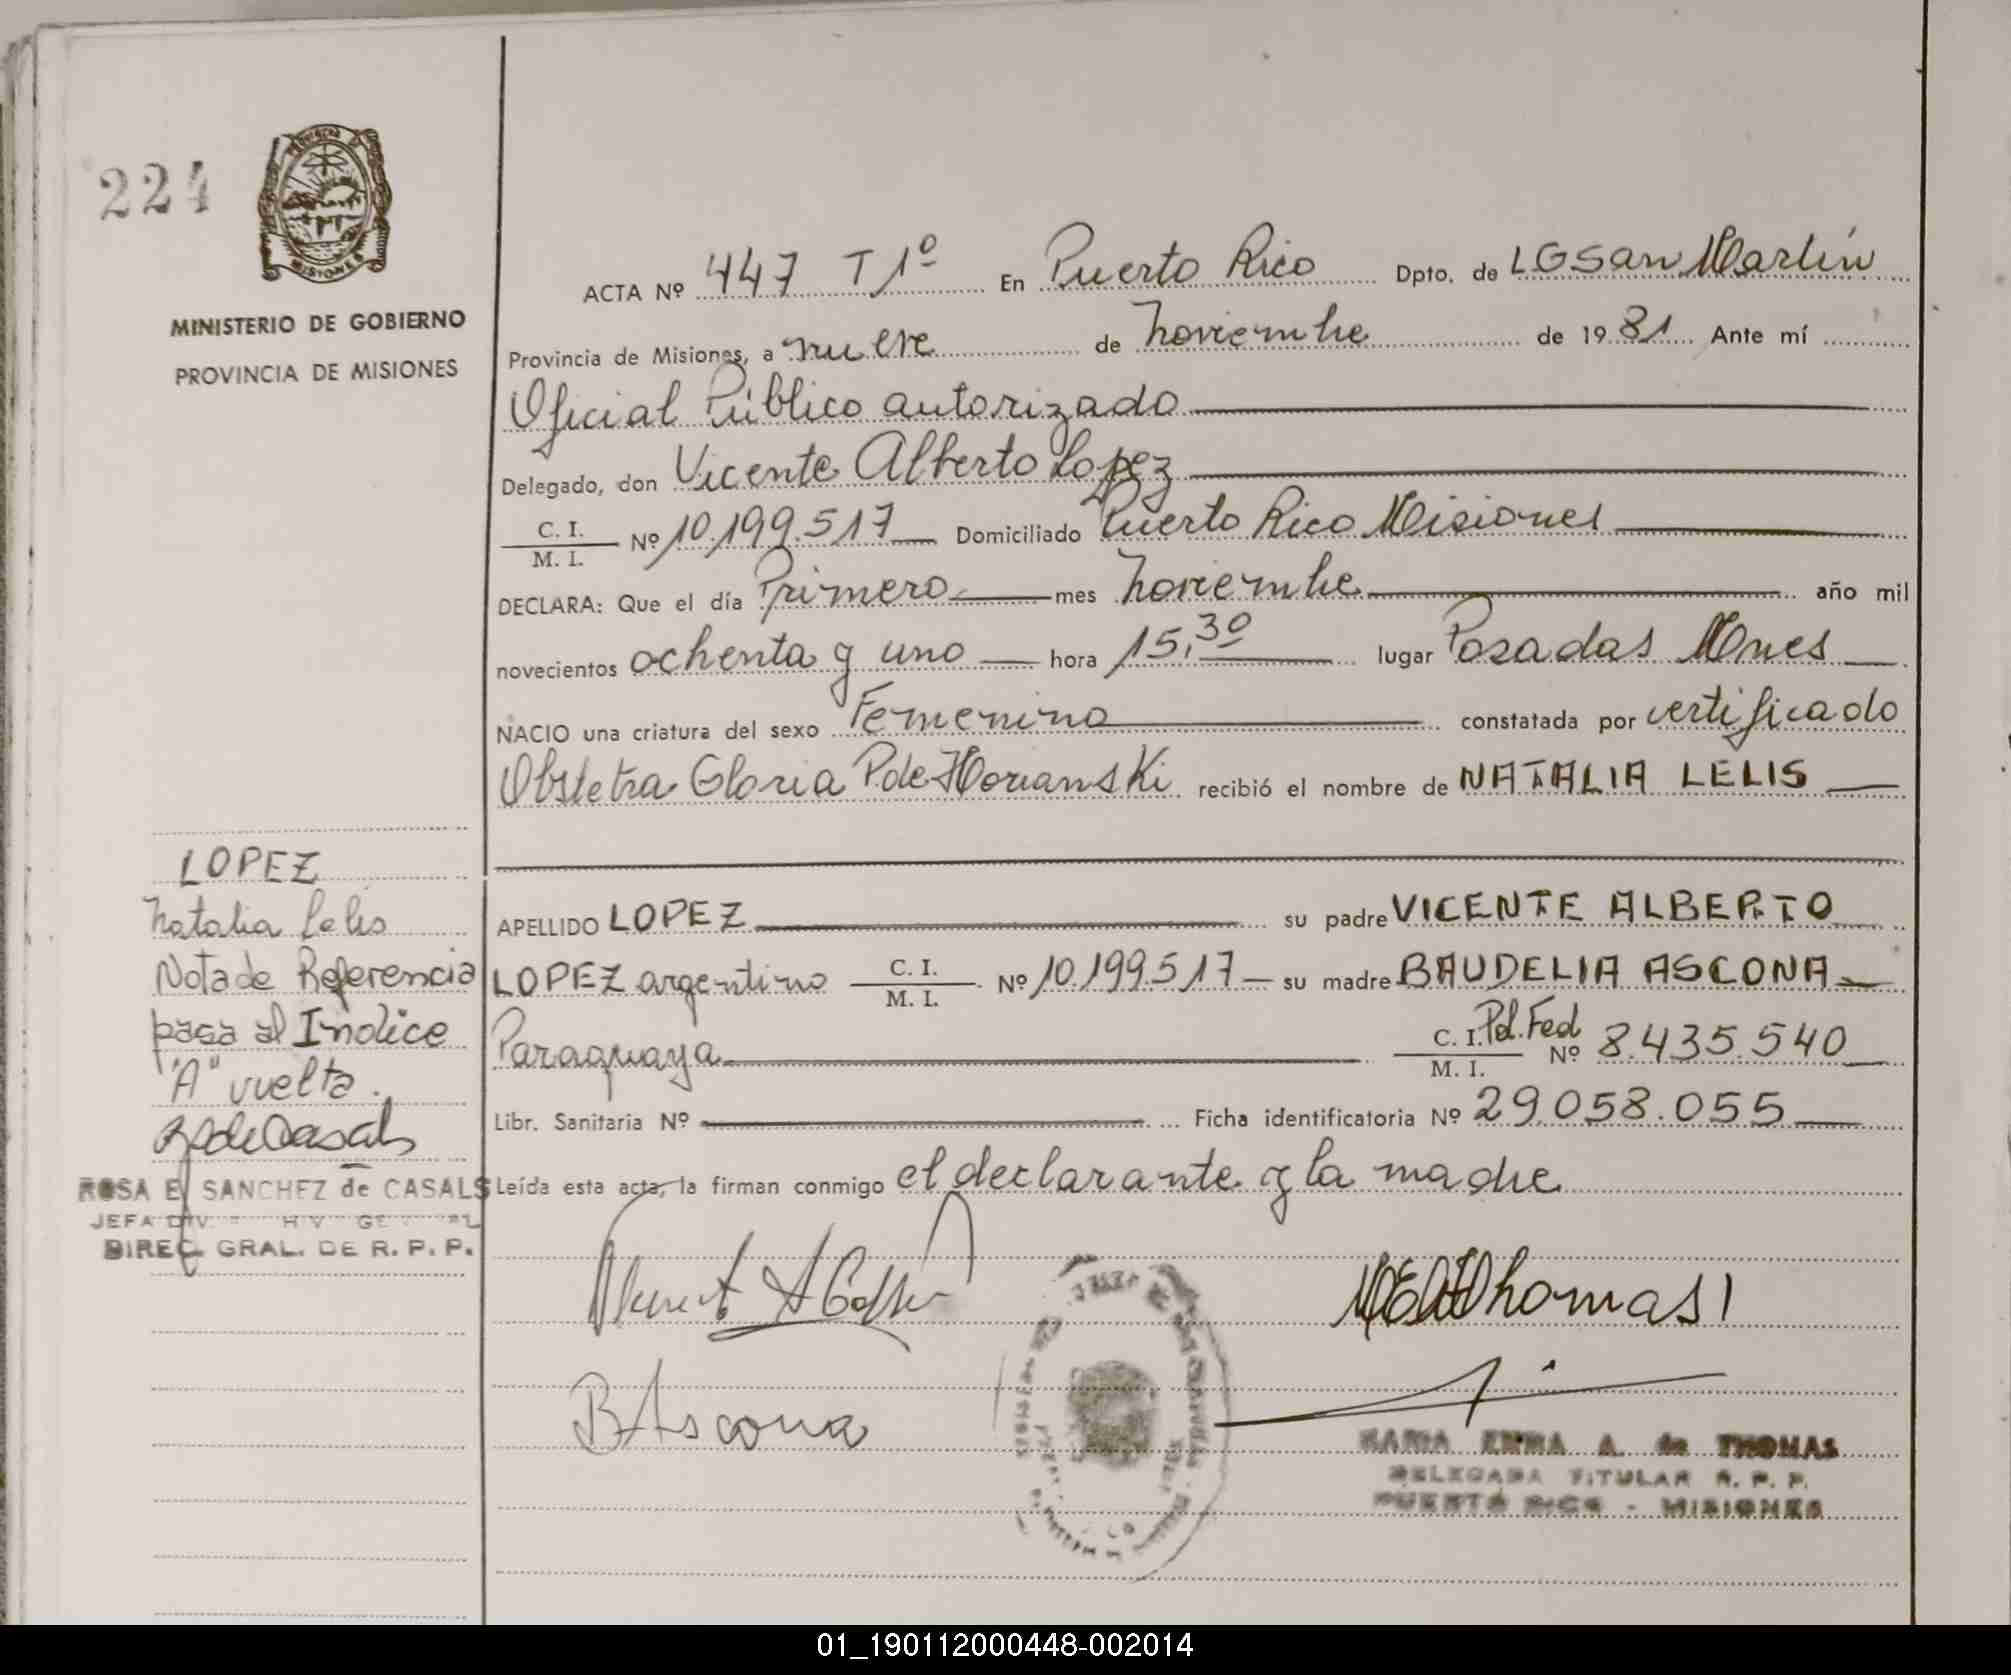 224
MISIONES
MINISTERIO DE GOBIERNO
PROVINCIA DE MISIONES
ACTA Nº 447 T 1º En Puerto Rico Dpto. de LGSan Martín
Provincia de Misiones, a nueve de noviembre de 1981 Ante mí
Oficial Público autorizado
Delegado, don Vicente Alberto Lopez
C. I.
M. I. Nº 10.199.517 Domiciliado Puerto Rico Misiones
DECLARA: Que el día Primero mes noviembre año mil
novecientos ochenta y uno hora 15,30 lugar Posadas Mnes
NACIO una criatura del sexo Femenino constatada por certificado
Obstetra Gloria P. de recibió el nombre de NATALIA LELIS
APELLIDO LOPEZ su padre VICENTE ALBERTO
LOPEZ argentino C. I. M. I. Nº 10.199.517 su madre BAUDELIA ASCONA
Paraguaya C. I. Pol. Fed M. I. Nº 8.435.540
Libr. Sanitaria Nº Ficha identificatoria Nº 29.058.055
Leída esta acta, la firman conmigo el declarante y la madre
LOPEZ
Natalia Lelis
Nota de Referencia
pasa al Indice
"A" vuelta.
RSdeCasals
ROSA E. SANCHEZ de CASALS
JEFA DIV.
DIREC. GRAL. DE R. P. P.
BAscona
Thomas
MARIA EMMA A. de THOMAS
DELEGADA TITULAR R. P. P.
PUERTO RICO - MISIONES
01_190112000448-002014